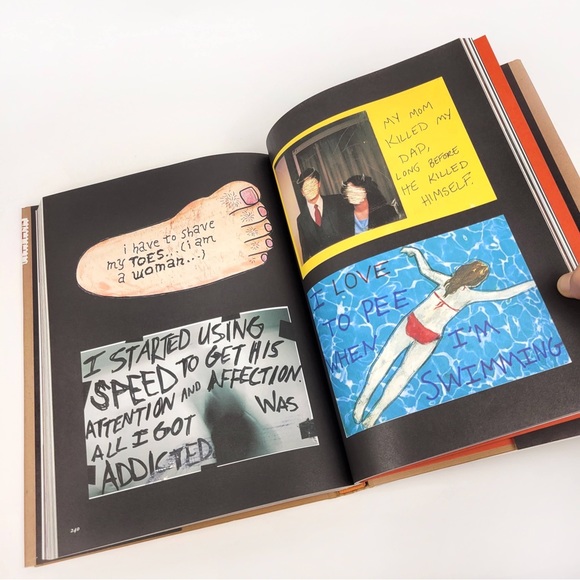 i have to shave
my TOES...(i am
a woman...)
I STARTED USING
SPEED TO GET HIS
ATTENTION AND AFFECTION.
ALL I GOT WAS
ADDICTED
240
MY MOM
KILLED MY
DAD,
LONG BEFORE
HE KILLED
HIMSELF.
I LOVE
TO PEE
WHEN I'M
SWIMMING